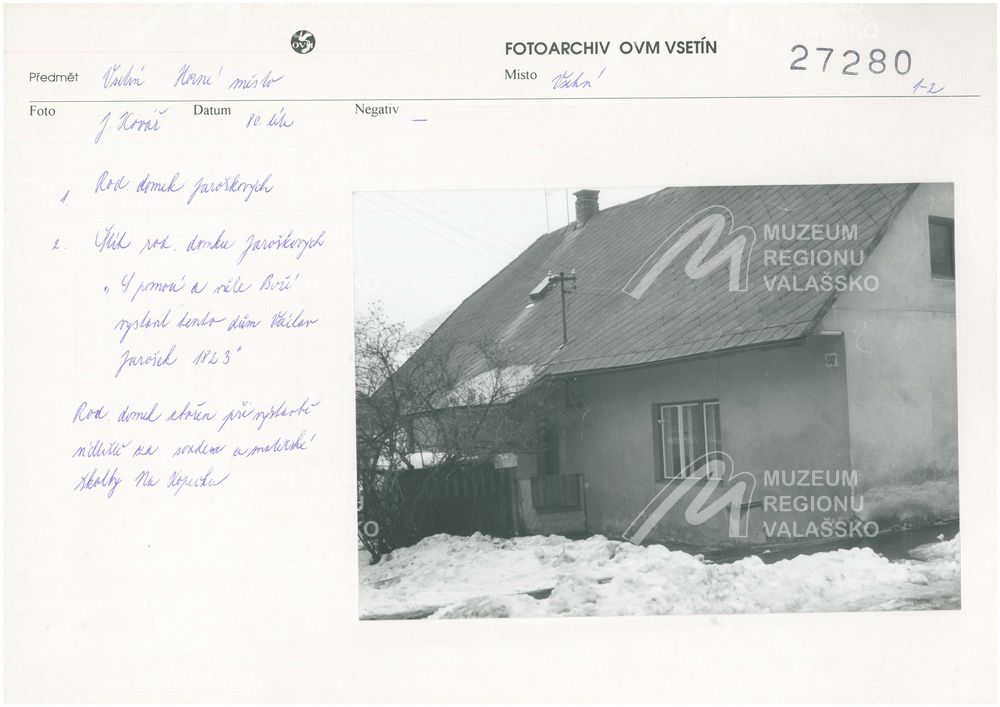 OVM
FOTOARCHIV OVM VSETÍN
27280
Předmět Vsetín Horní město
Místo Vsetín
1-2
Foto J. Kovář
Datum 80. léta
Negativ —
1. Rod. domek Jaroškových
2. Štít rod. domku Jaroškových
"S pomocí a vůle Boží
vystavil tento dům Václav
Jarošek 1823"
Rod. domek zbořen při výstavbě
sídliště za soudem a mateřské
školky Na Kopečku
MUZEUM
REGIONU
VALAŠSKO
MUZEUM
REGIONU
VALAŠSKO
REGIONU
VALAŠSKO